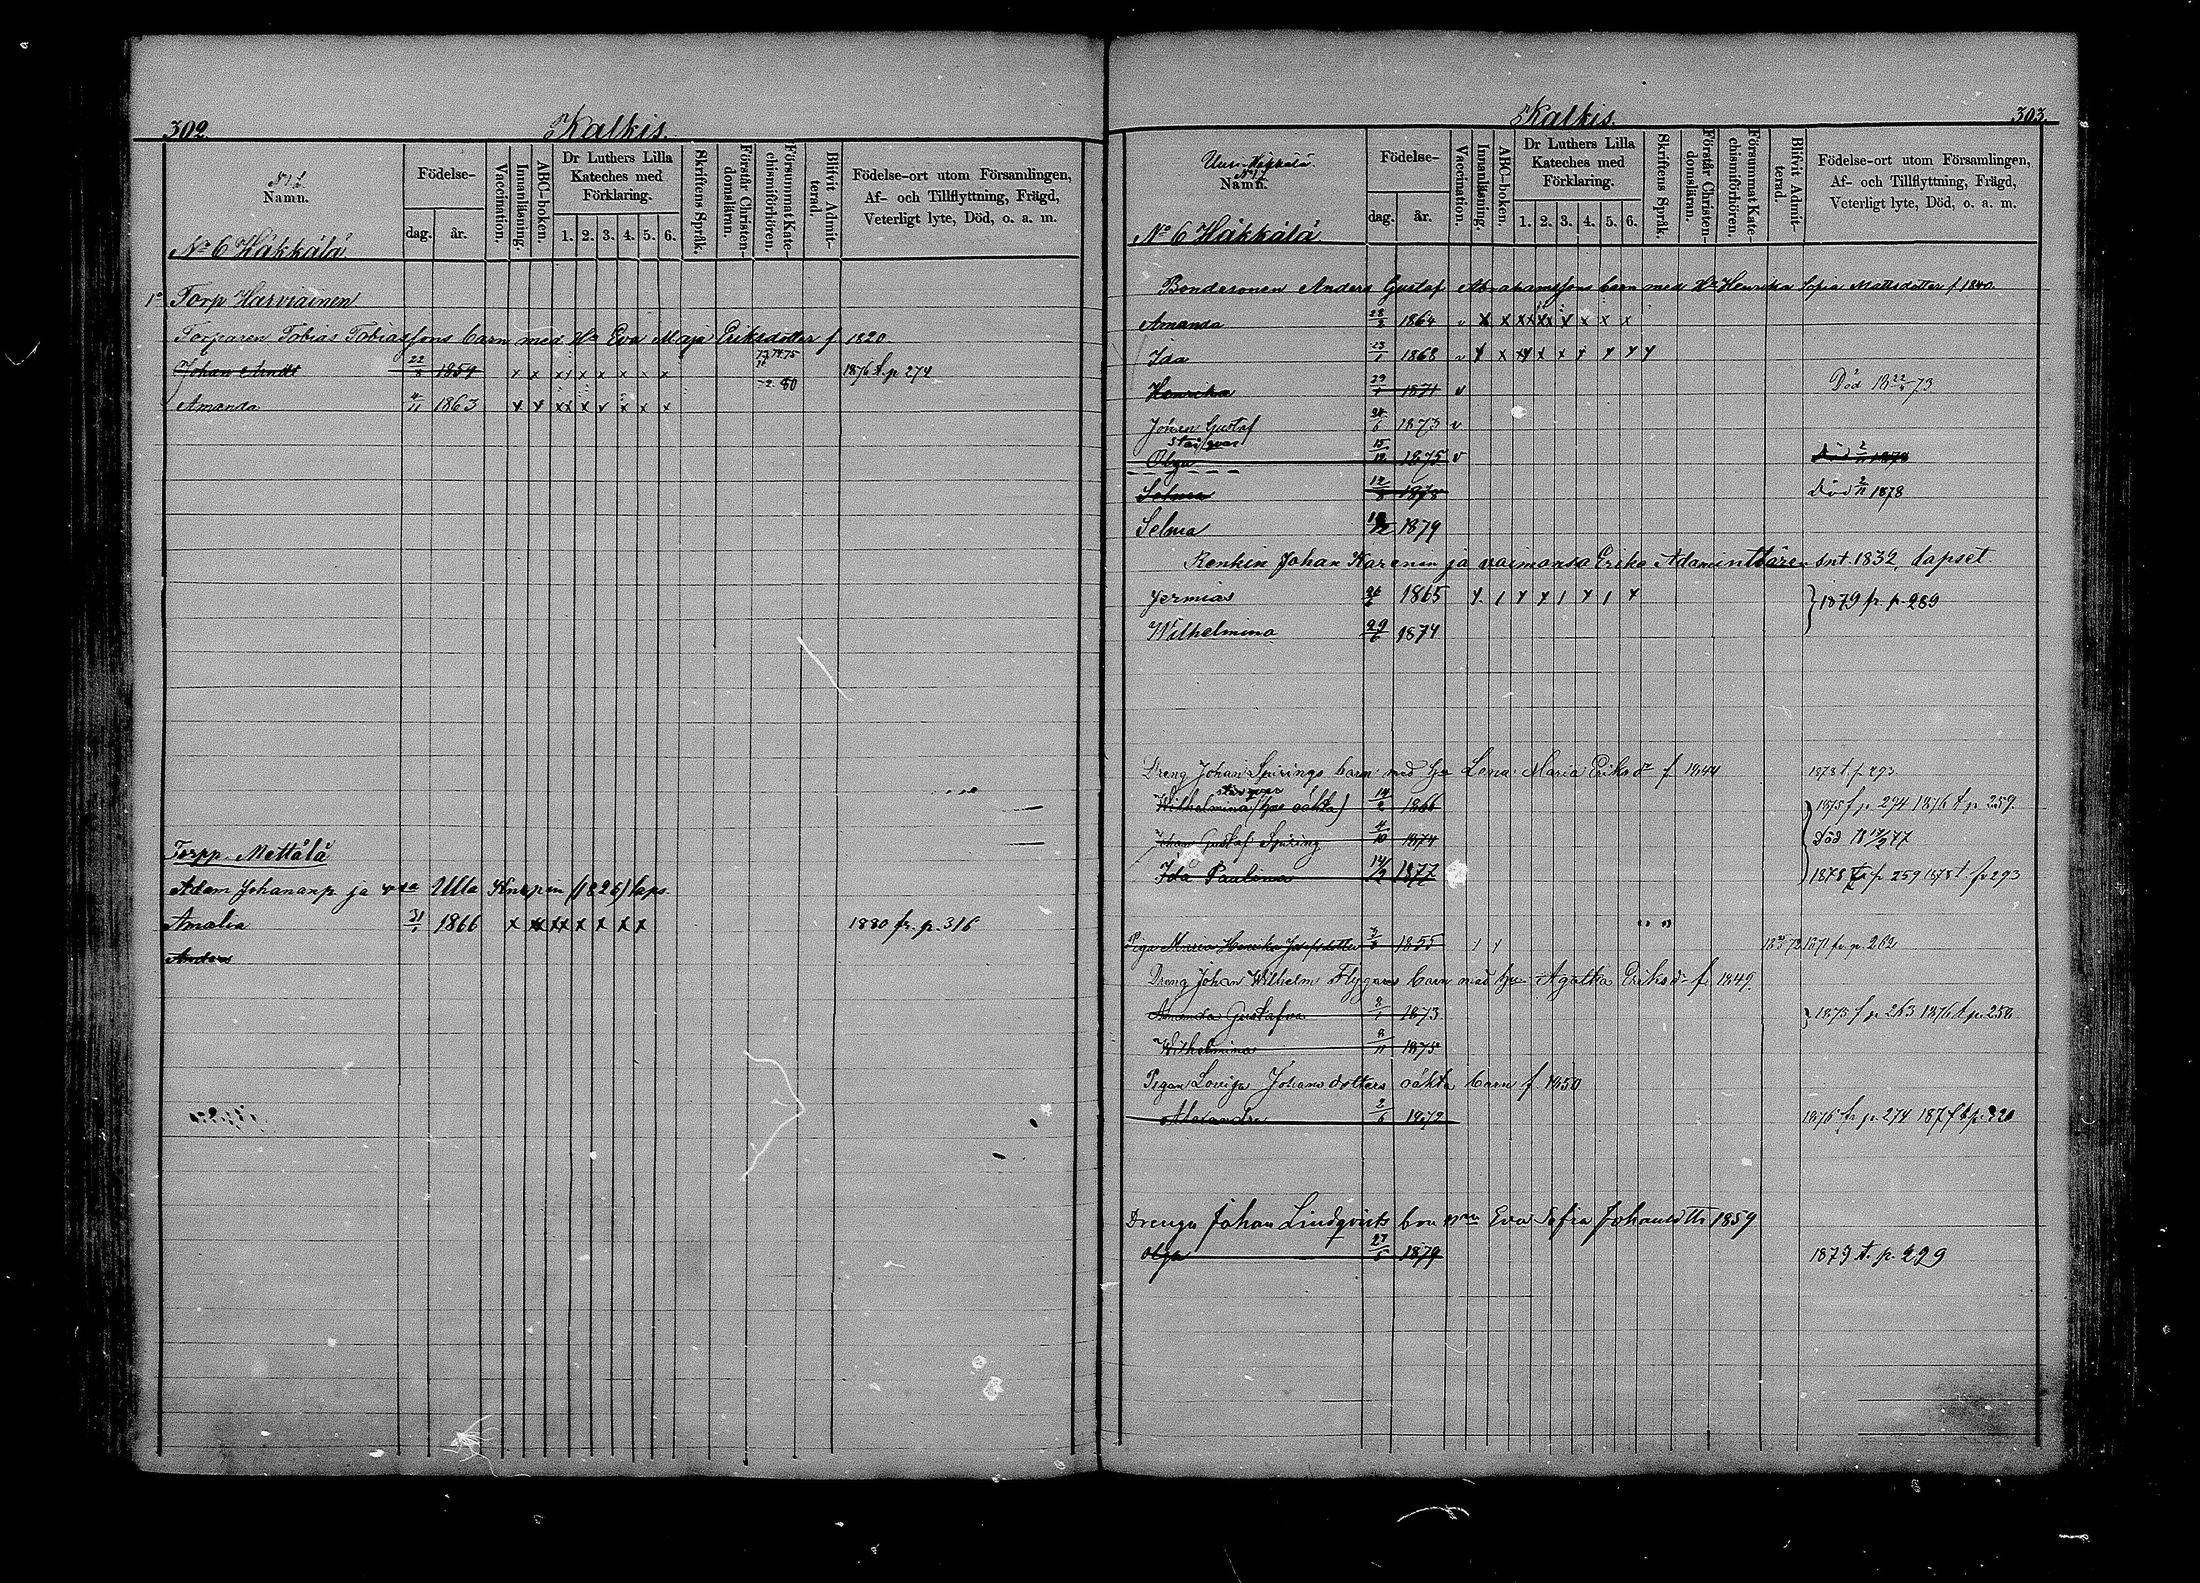 302.
Kalkis.
Namn.
Födelse-
dag.
år.
Vaccination.
Innanläsning.
ABC-boken.
Dr Luthers Lilla
Kateches med
Förklaring.
1. 2. 3. 4. 5. 6.
Skriftens Språk.
Förstår Christen-
domsläran.
Försummat Kate-
chismiförhören.
Blifvit Admit-
terad.
Födelse-ort utom Församlingen,
Af- och Tillflyttning, Frägd,
Veterligt lyte, Död, o. a. m.
No 6 Häkkälä
1o Torp Harviainen
Torparen Tobias Tobiassons barn med Ha Eva Maja Eriksdotter f 1820
Johan 22/8 1859 x x xx x x x x x 73 74 75 80 1876 t. p 274
Amanda 4/11 1863 x x xx x x x x x
Torpp. Mettälä
Adam Johananp ja Ulla Knapin (1826) laps.
Amalia 31/1 1866 x x xx x x x x 1880 fr. p. 316
Anders
Kalkis.
303.
Uusi-Häkkälä.
Namn.
Födelse-
dag.
år.
Vaccination.
Innanläsning.
ABC-boken.
Dr Luthers Lilla
Kateches med
Förklaring.
1. 2. 3. 4. 5. 6.
Skriftens Språk.
Förstår Christen-
domsläran.
Försummat Kate-
chismiförhören.
Blifvit Admit-
terad.
Födelse-ort utom Församlingen,
Af- och Tillflyttning, Frägd,
Veterligt lyte, Död, o. a. m.
No 6 Häkkälä
Bondesonen Anders Gustaf Abrahamssons barn med Ha Henrika Sofia Mattsdotter f 1840.
Amanda 28/2 1864 v x x xx xx x x x x
Ida 23/1 1868 v x x xx x x x x x x
Henrika 29/1 1871 v Död 18 22/ 73
Johan Gustaf 24/6 1873 v
står qvar
Olga 15/12 1875 v Död 2/11 1878
Selma 12/8 1878 Död 2/11 1878
Selma /12 1879
Renkin Johan Karenin ja vaimonsa Erika Adaminttären snt. 1832, lapset.
Jermias 26/6 1865 1879 fr. p. 289
Wilhelmina 29/6 1874
Dreng Johan Spirings barn med hu Lena Maria Eriksdr f 1844 1878 t. p. 293
står qvar
Wilhelmina (hus oäkta) 14/2 1866 1875 f p. 274 1876 t p. 259.
Johan Gustaf Spiring 4/10 1874 Död 18 17/2 77
Ida Paulina 14/2 1877 1878 fr p 259 1878 t. p 293
Piga Maria Henrika Josefsdotter 3/3 1855 1871 fr. p. 262
Dreng Johan Wilhelm Flygares barn med hu Agatha Eriksdr f. 1849.
Amanda Gustafva 8/1 1873 1875 f p 263 1876 t p. 258
Wilhelmina 9/11 1875
Pigan Lovisa Johansdotters oäkta barn f. 1850
Alexandra 2/6 1872 1876 fr p. 274 1877 t p. 320
Drengn Johan Lindqvists bn mn Eva Sofia Johansdttr 1859
Olga 27/5 1879 1879 t. p. 229